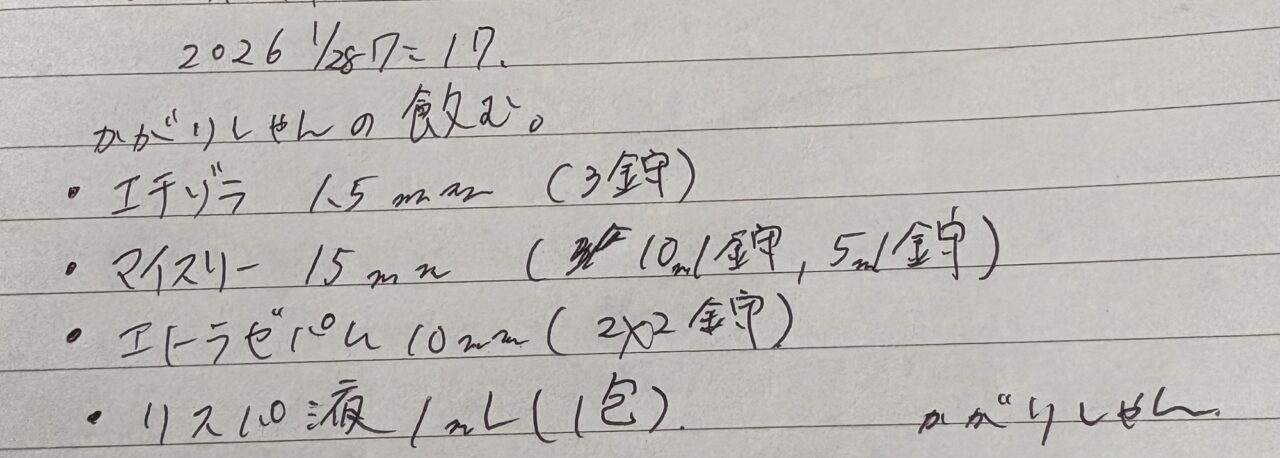 2026 1/28 17=17.
かがりしゃんの飲む。
・エチゾラ 1.5mm (3錠)
・マイスリー 15mm (10m1錠, 5m1錠)
・エトラゼパム 10mm (2×2錠)
・リスパ液 1mL (1包).
かがりしゃん.